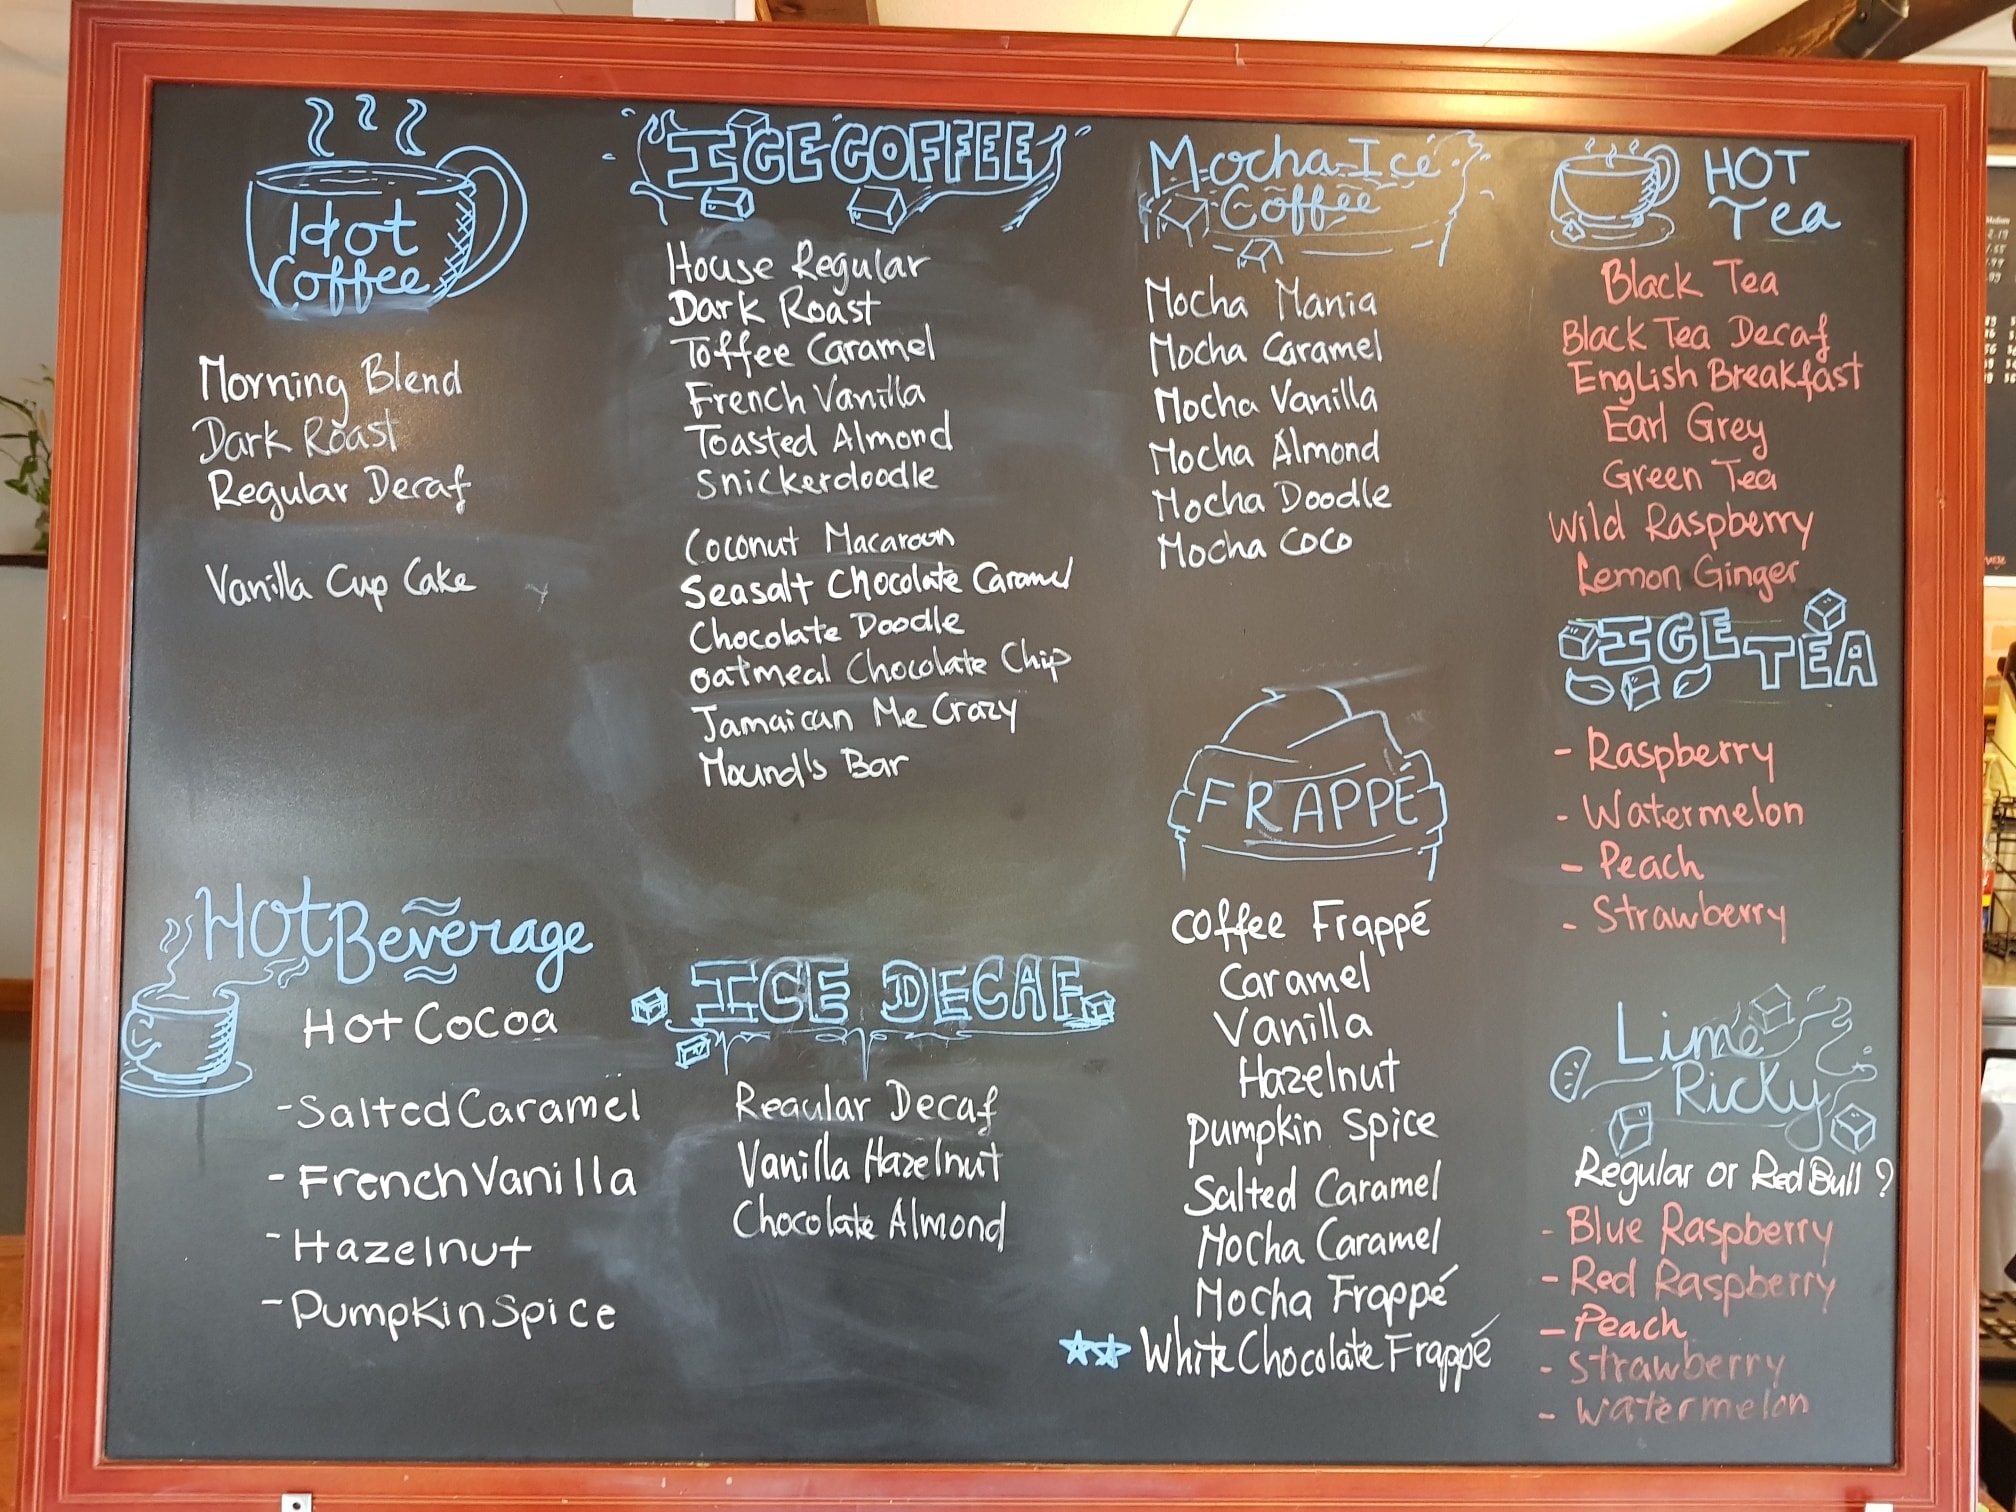 Hot
Coffee
Morning Blend
Dark Roast
Regular Decaf
Vanilla Cup Cake
Hot Beverage
Hot Cocoa
- Salted Caramel
- French Vanilla
- Hazelnut
- Pumpkin Spice
ICE COFFEE
House Regular
Dark Roast
Toffee Caramel
French Vanilla
Toasted Almond
Snickerdoodle
Coconut Macaroon
Seasalt Chocolate Caramel
Chocolate Doodle
oatmeal Chocolate Chip
Jamaican Me Crazy
Mound's Bar
ICE DECAF
Regular Decaf
Vanilla Hazelnut
Chocolate Almond
Mocha Ice
Coffee
Mocha Mania
Mocha Caramel
Mocha Vanilla
Mocha Almond
Mocha Doodle
Mocha Coco
FRAPPÉ
Coffee Frappé
Caramel
Vanilla
Hazelnut
Pumpkin Spice
Salted Caramel
Mocha Caramel
Mocha Frappé
White Chocolate Frappé
HOT
Tea
Black Tea
Black Tea Decaf
English Breakfast
Earl Grey
Green Tea
Wild Raspberry
Lemon Ginger
ICE TEA
- Raspberry
- Watermelon
- Peach
- Strawberry
Lime
Ricky
Regular or Red Bull?
- Blue Raspberry
- Red Raspberry
- Peach
- Strawberry
- Watermelon